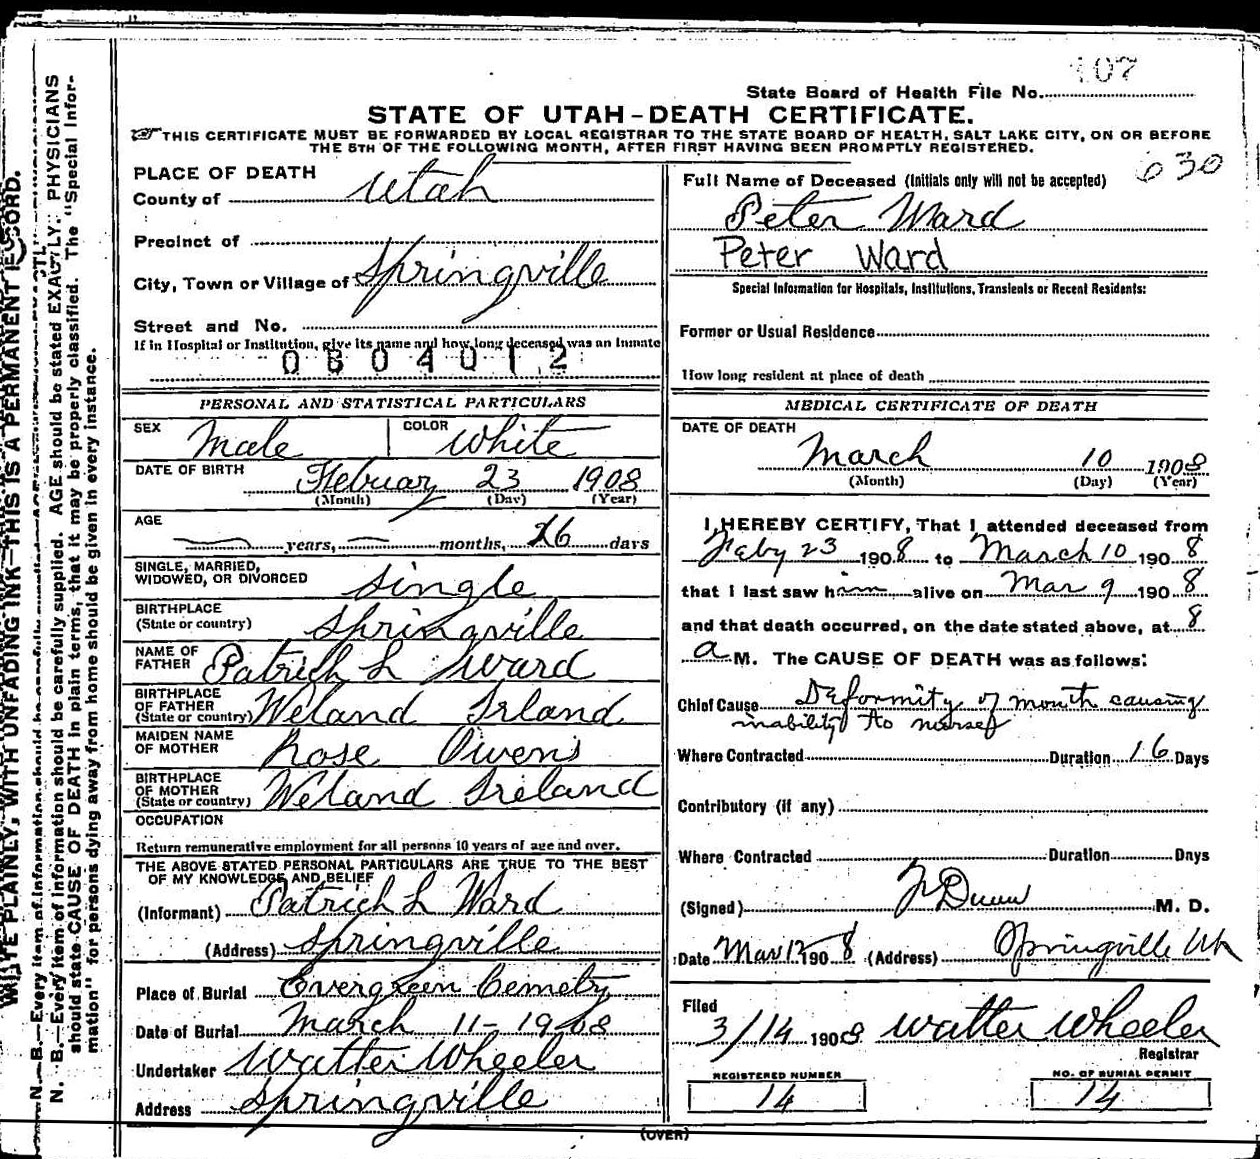 107
State Board of Health File No.
STATE OF UTAH-DEATH CERTIFICATE.
THIS CERTIFICATE MUST BE FORWARDED BY LOCAL REGISTRAR TO THE STATE BOARD OF HEALTH, SALT LAKE CITY, ON OR BEFORE
THE 5TH OF THE FOLLOWING MONTH, AFTER FIRST HAVING BEEN PROMPTLY REGISTERED.
630
PLACE OF DEATH
County of Utah
Precinct of
City, Town or Village of Springville
Street and No.
If in Hospital or Institution, give its name and how long deceased was an Inmate
0804012
PERSONAL AND STATISTICAL PARTICULARS
SEX Male COLOR White
DATE OF BIRTH Februay 23 1908
(Month) (Day) (Year)
AGE
years, months, 26 days
SINGLE, MARRIED,
WIDOWED, OR DIVORCED Single
BIRTHPLACE
(State or country) Springville
NAME OF
FATHER Patrick L Ward
BIRTHPLACE
OF FATHER
(State or country) Weland Irland
MAIDEN NAME
OF MOTHER Rose Owens
BIRTHPLACE
OF MOTHER
(State or country) Weland Ireland
OCCUPATION
Return remunerative employment for all persons 10 years of age and over.
THE ABOVE STATED PERSONAL PARTICULARS ARE TRUE TO THE BEST
OF MY KNOWLEDGE AND BELIEF
(Informant) Patrick L Ward
(Address) Springville
Place of Burial Evergreen Cemetry
Date of Burial March 11-1908
Undertaker Watter Wheeler
Address Springville
Full Name of Deceased (Initials only will not be accepted)
Peter Ward
Peter Ward
Special Information for Hospitals, Institutions, Transients or Recent Residents:
Former or Usual Residence
How long resident at place of death
MEDICAL CERTIFICATE OF DEATH
DATE OF DEATH
March 10 1908
(Month) (Day) (Year)
I HEREBY CERTIFY, That I attended deceased from
Feby 23 1908 to March 10 1908
that I last saw him alive on Mar 9 1908
and that death occurred, on the date stated above, at 8
a M. The CAUSE OF DEATH was as follows:
Chief Cause Deformity of mouth causing
inability to nurse
Where Contracted Duration 16 Days
Contributory (if any)
Where Contracted Duration Days
(Signed) Dunn M. D.
Date Mar 12 1908 (Address) Springville Ut
Filed
3/14 1908 Watter Wheeler
Registrar
REGISTERED NUMBER
14
NO. OF BURIAL PERMIT
14
(OVER)
WRITE PLAINLY, WITH UNFADING INK—THIS IS A PERMANENT RECORD.
N. B.—Every item of information should be carefully supplied. AGE should be stated EXACTLY. PHYSICIANS
should state CAUSE OF DEATH in plain terms, that it may be properly classified. The "Special Infor-
mation" for persons dying away from home should be given in every instance.